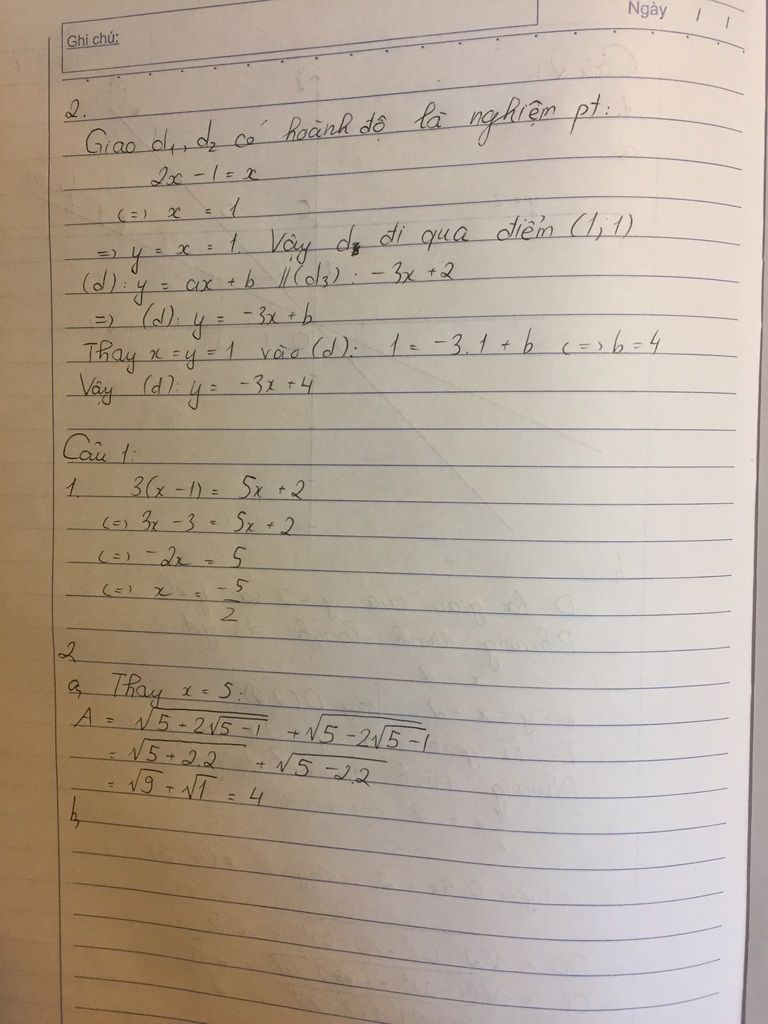 Ghi chú:
Ngày / /
2.
Giao d₁, d₂ có hoành độ là nghiệm pt:
2x - 1 = x
<=> x = 1
=> y = x = 1. Vậy d₃ đi qua điểm (1, 1)
(d): y = ax + b // (d₃): -3x + 2
=> (d): y = -3x + b
Thay x = y = 1 vào (d): 1 = -3.1 + b <=> b = 4
Vậy (d): y = -3x + 4
Câu 1:
1. 3(x - 1) = 5x + 2
<=> 3x - 3 = 5x + 2
<=> -2x = 5
<=> x = -5/2
2
a, Thay x = 5:
A = √(5 + 2√(5 - 1)) + √(5 - 2√(5 - 1))
= √(5 + 2.2) + √(5 - 2.2)
= √9 + √1 = 4
b,